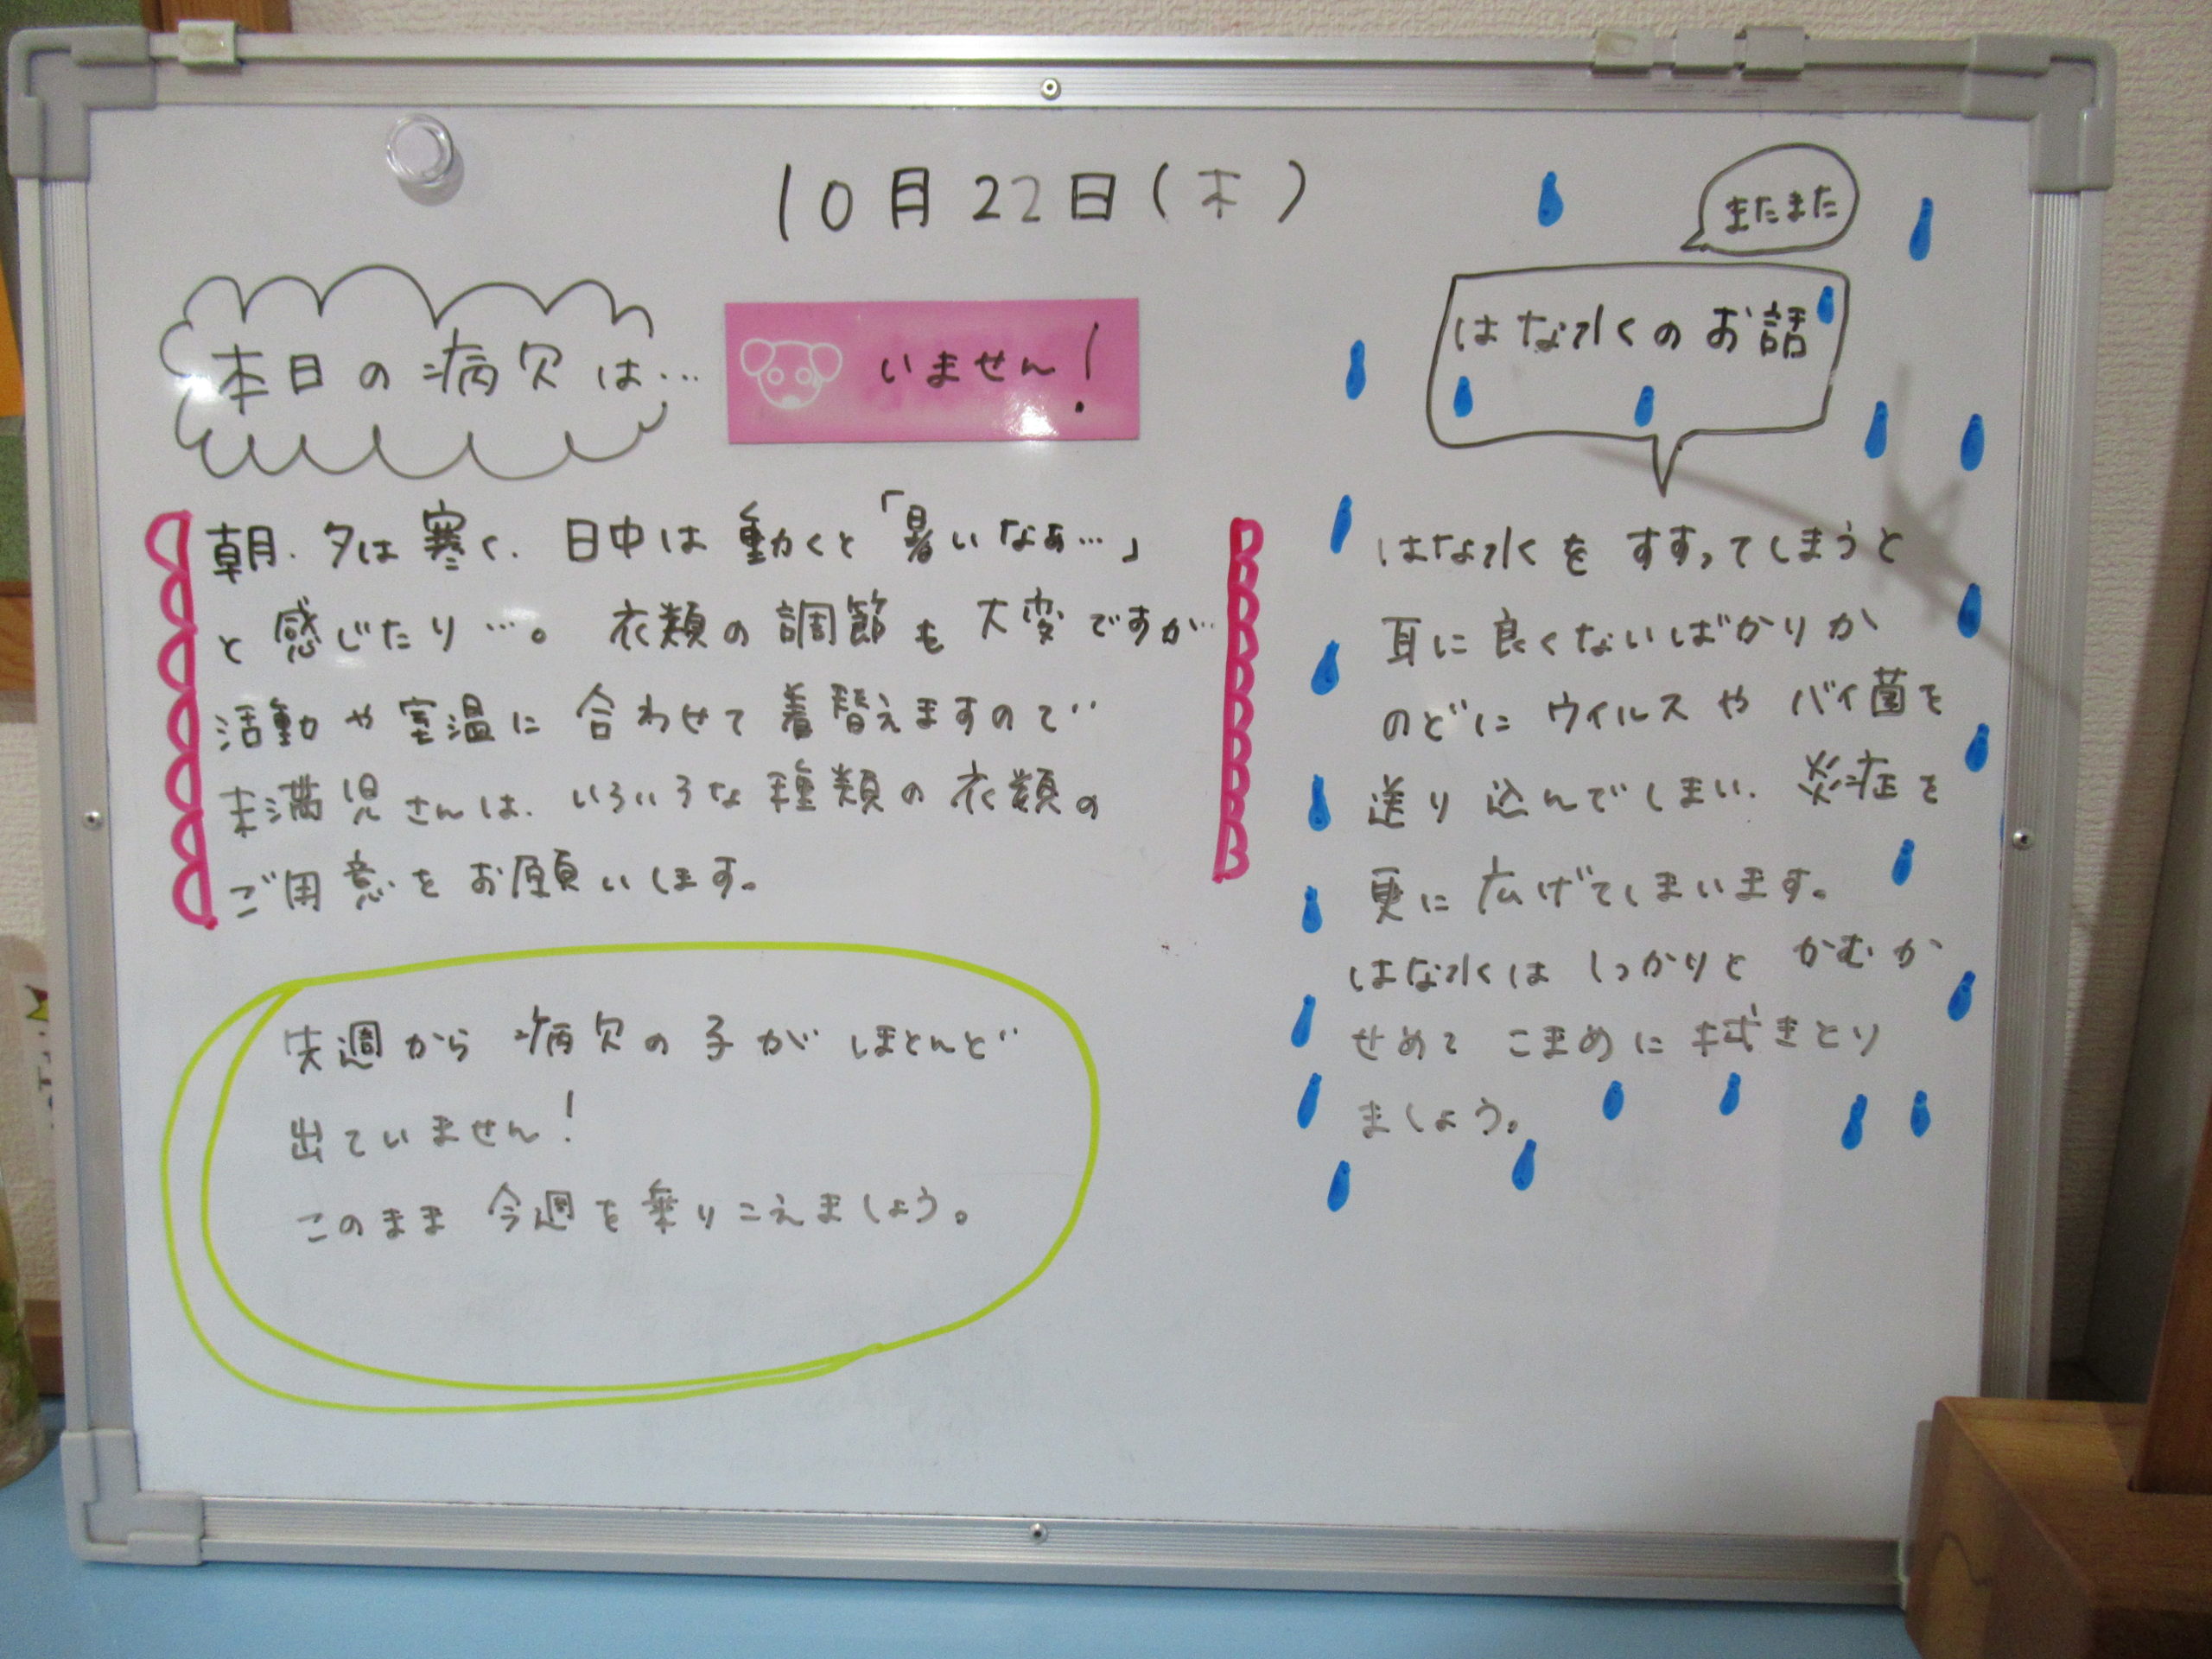 10月22日(木)
本日の病欠は…
いません!
朝.夕は寒く、日中は動くと「暑いなぁ…」
と感じたり…。衣類の調節も大変ですが…
活動や室温に合わせて着替えますので
未満児さんは、いろいろな種類の衣類の
ご用意をお願いします。
先週から病欠の子がほとんど
出ていません!
このまま今週を乗りこえましょう。
またまた
はな水のお話
はな水をすすってしまうと
耳に良くないばかりか
のどにウイルスやバイ菌を
送り込んでしまい、炎症を
更に広げてしまいます。
はな水はしっかりとかむか
せめてこまめに拭きとり
ましょう。